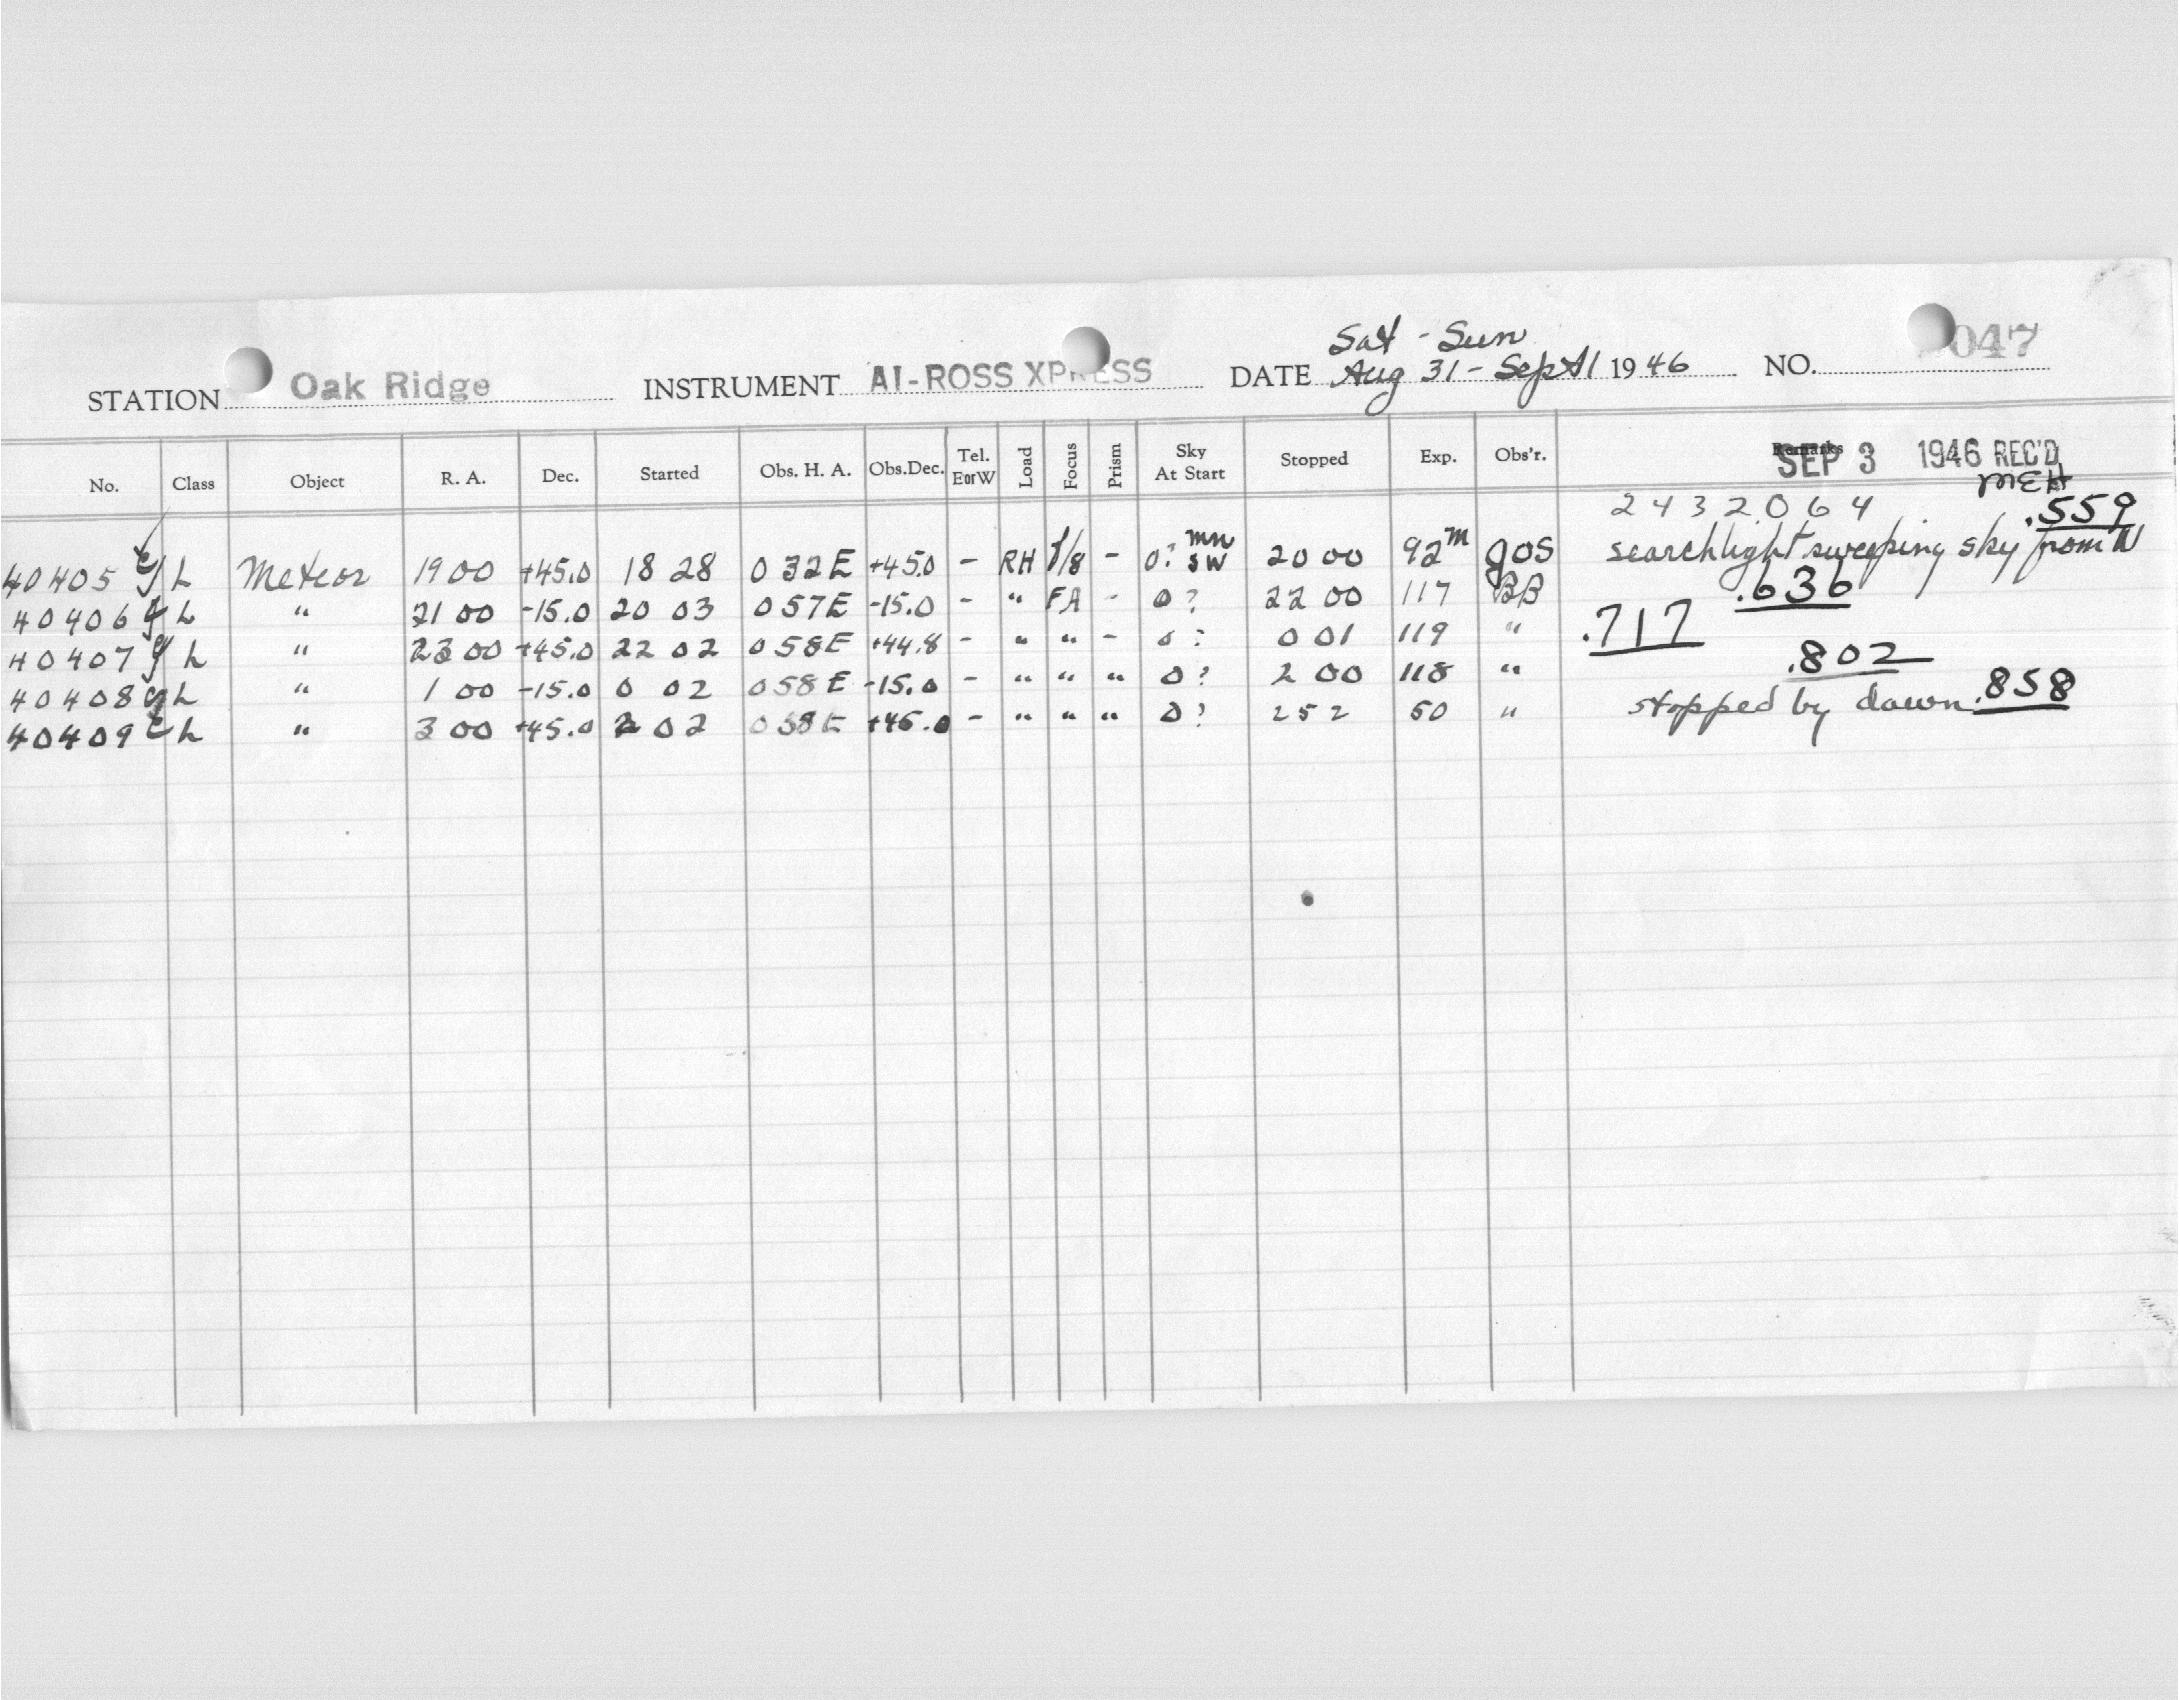 Sat - Sun
STATION Oak Ridge INSTRUMENT AI-ROSS XPRESS DATE Aug 31 - Sept 1 1946 NO. 047
No. Class Object R. A. Dec. Started Obs. H. A. Obs.Dec. Tel. EorW Load Focus Prism Sky At Start Stopped Exp. Obs'r. Remarks
SEP 3 1946 REC'D
MEH
2432064 .559
40405 L Meteor 19 00 +45.0 18 28 0 32E +45.0 - RH 1/8 - 0? mn sw 20 00 92m gos searchlight sweeping sky from N
40406 L " 21 00 -15.0 20 03 0 57E -15.0 - " FA - 0? 22 00 117 BB .636
40407 L " 23 00 +45.0 22 02 0 58E +44.8 - " " - 0? 0 01 119 " .717
40408 L " 1 00 -15.0 0 02 0 58E -15.0 - " " " 0? 2 00 118 " .802
40409 L " 3 00 +45.0 2 02 0 58E +45.0 - " " " 0? 2 52 50 " stopped by dawn .858